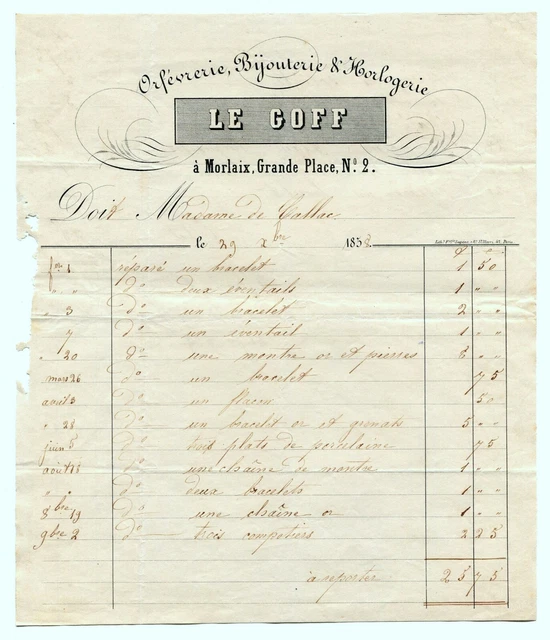 Orfévrerie, Bijouterie & Horlogerie
LE GOFF
à Morlaix, Grande Place, No. 2.
Doit Madame de Callac
le 29 Xbre 1858
1 réparé un bracelet 1 50
" " do deux éventails 1 " "
" 3 do un bracelet 2 " "
" 7 do un éventail 1 " "
" 20 do une montre or et pierres 8 " "
mars 26 do un bracelet 75
3 do un flacon 50
" 28 do un bracelet or et grenats 5 " "
juin 5 do trois plats de porcelaine 75
août 18 do une chaîne de montre 1 " "
" " do deux bracelets 1 " "
8bre 19 do une chaîne or 1 " "
9bre 2 do trois compotiers 2 25
à reporter 25 75